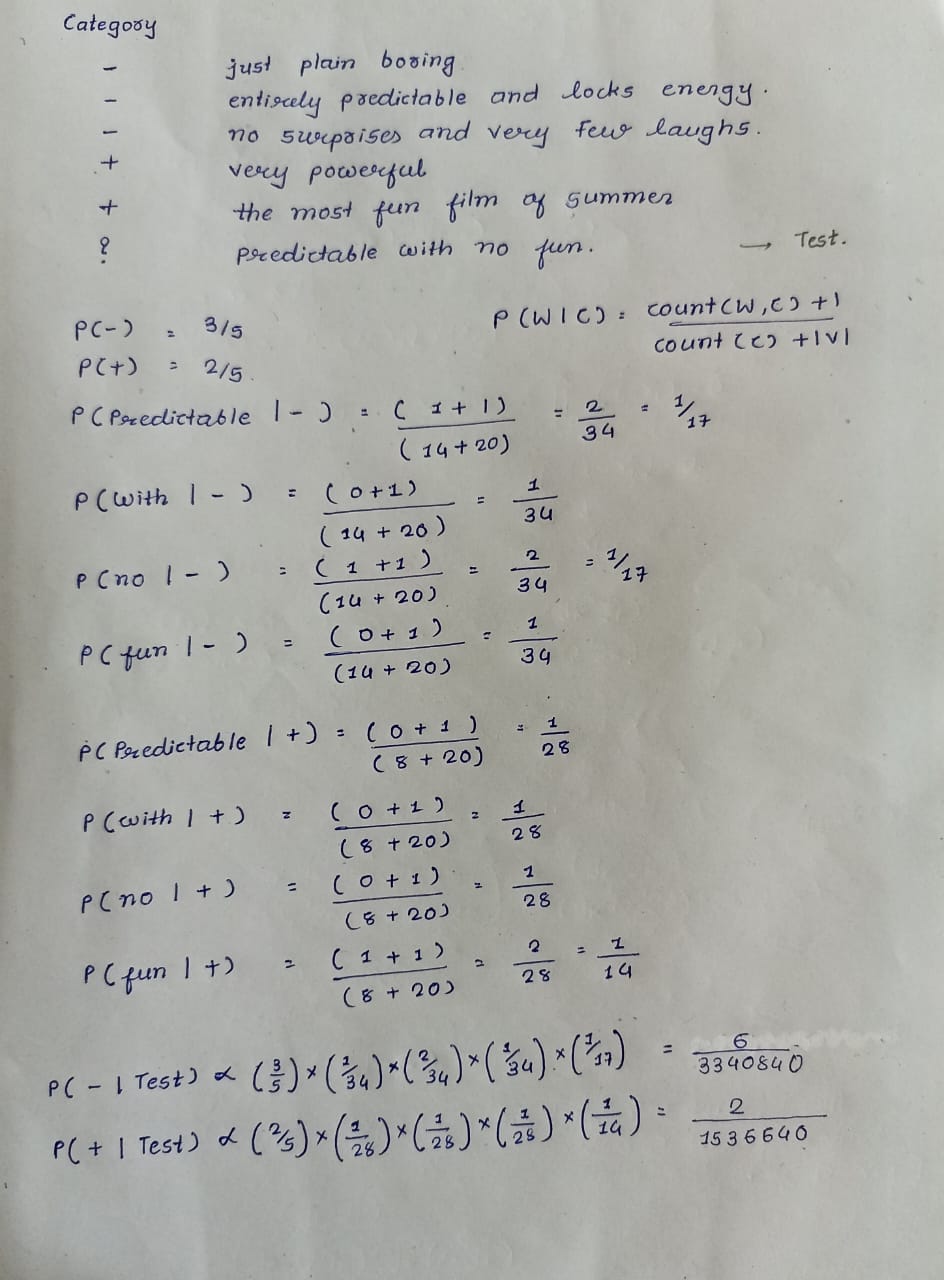 Category
- just plain boring
- entirely predictable and locks energy.
- no surprises and very few laughs.
+ very powerful
+ the most fun film of summer
? predictable with no fun. → Test.
P(-) = 3/5
P(W|C) = count(W,C)+1 / count(C)+|V|
P(+) = 2/5.
P(Predictable | -) = (1+1) / (14+20) = 2/34 = 1/17
P(with | -) = (0+1) / (14+20) = 1/34
P(no | -) = (1+1) / (14+20) = 2/34 = 1/17
P(fun | -) = (0+1) / (14+20) = 1/34
P(Predictable | +) = (0+1) / (8+20) = 1/28
P(with | +) = (0+1) / (8+20) = 1/28
P(no | +) = (0+1) / (8+20) = 1/28
P(fun | +) = (1+1) / (8+20) = 2/28 = 1/14
P(- | Test) ∝ (3/5)×(1/34)×(2/34)×(1/34)×(1/17) = 6/3340840
P(+ | Test) ∝ (2/5)×(1/28)×(1/28)×(1/28)×(1/14) = 2/1536640